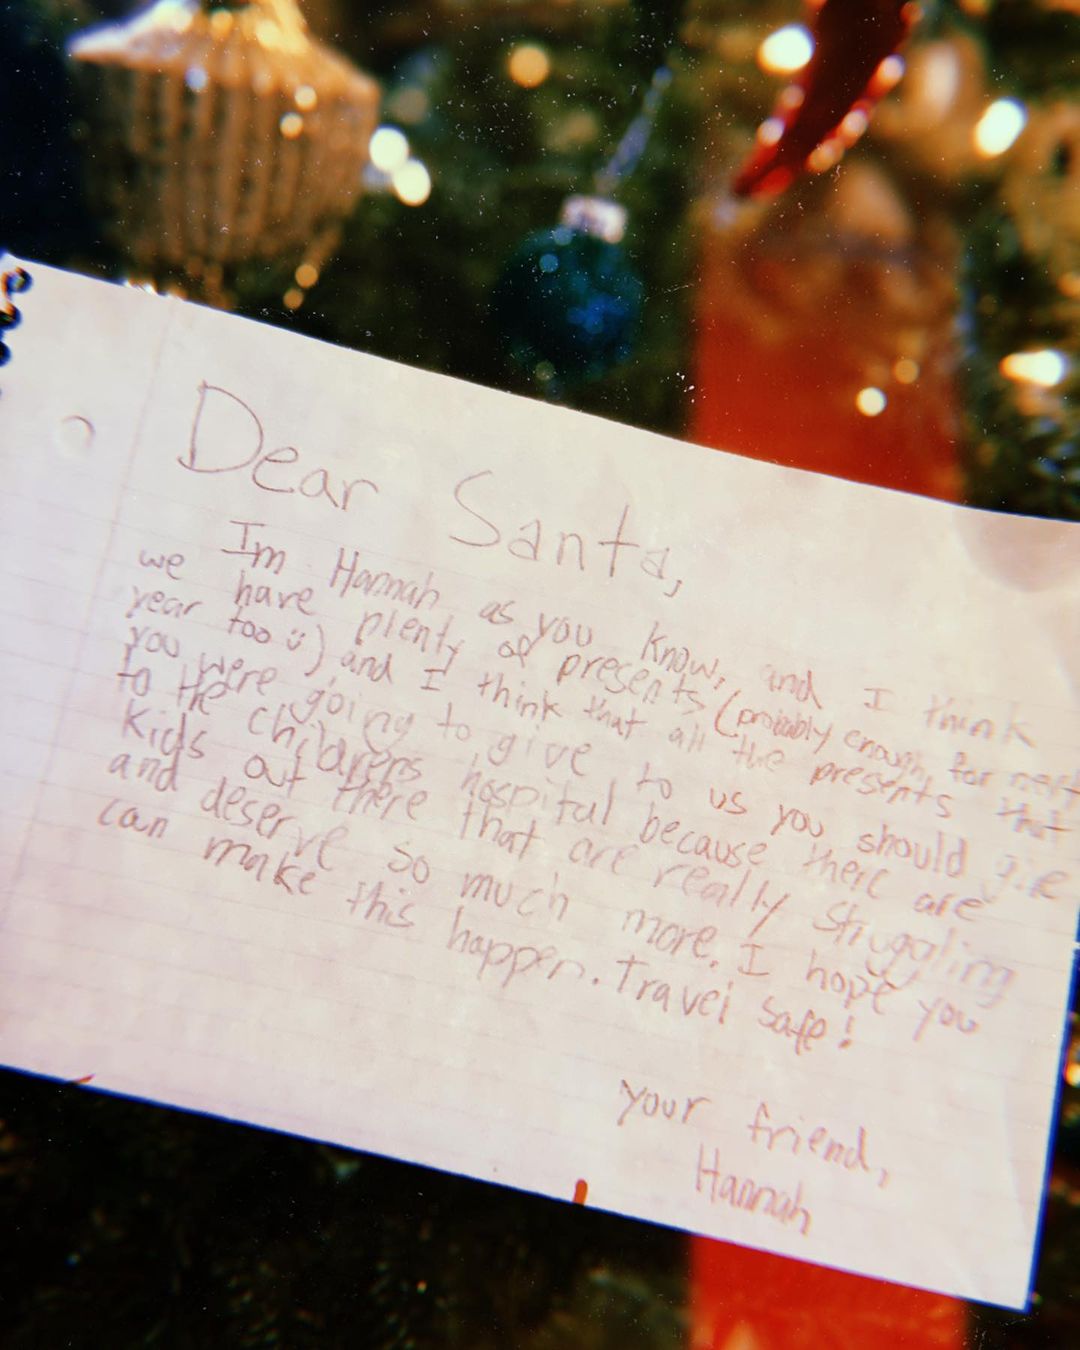 Dear Santa,
Im Hannah as you know, and I think
we have plenty of presents, (probably enough for next
year too ☺) and I think that all the presents that
you were going to give to us you should give
to the childrens hospital because there are
kids out there that are really struggling
and deserve so much more. I hope you
can make this happen. Travel safe!
your friend,
Hannah